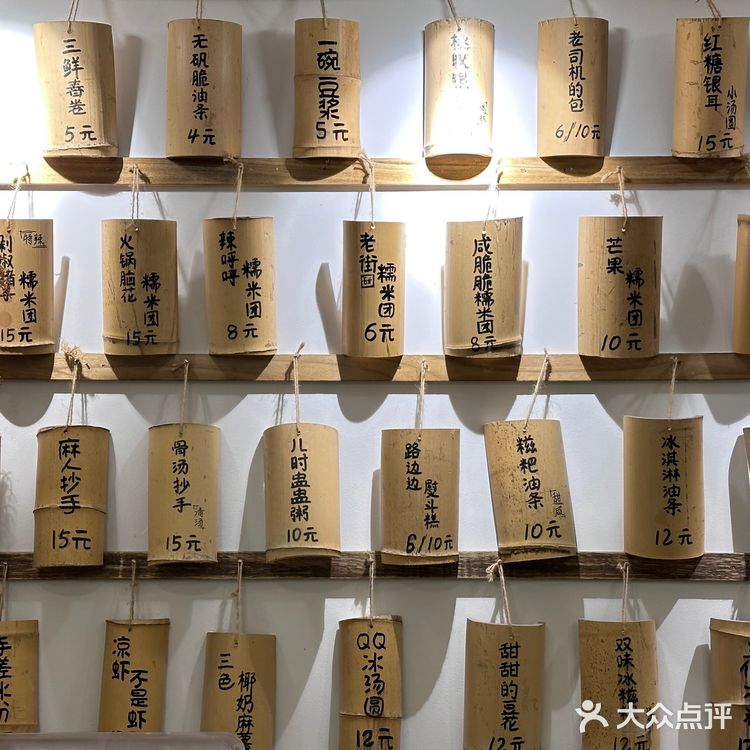 三鲜春卷
5元
无矾脆油条
4元
一碗豆浆
5元
老司机的包
6/10元
红糖银耳
小汤圆
15元
特辣
糯米团
15元
火锅脑花
糯米团
15元
辣呼呼
糯米团
8元
老街
糯米团
6元
咸脆脆糯米团
8元
芒果
糯米团
10元
麻人抄手
15元
骨汤抄手
清汤
15元
儿时蛊蛊粥
10元
路边边
熨斗糕
6/10元
糍粑油条
10元
冰淇淋油条
12元
凉虾
不是虾
三色
椰奶麻薯
QQ冰汤圆
12元
甜甜的豆花
12元
双味冰糍
大众点评